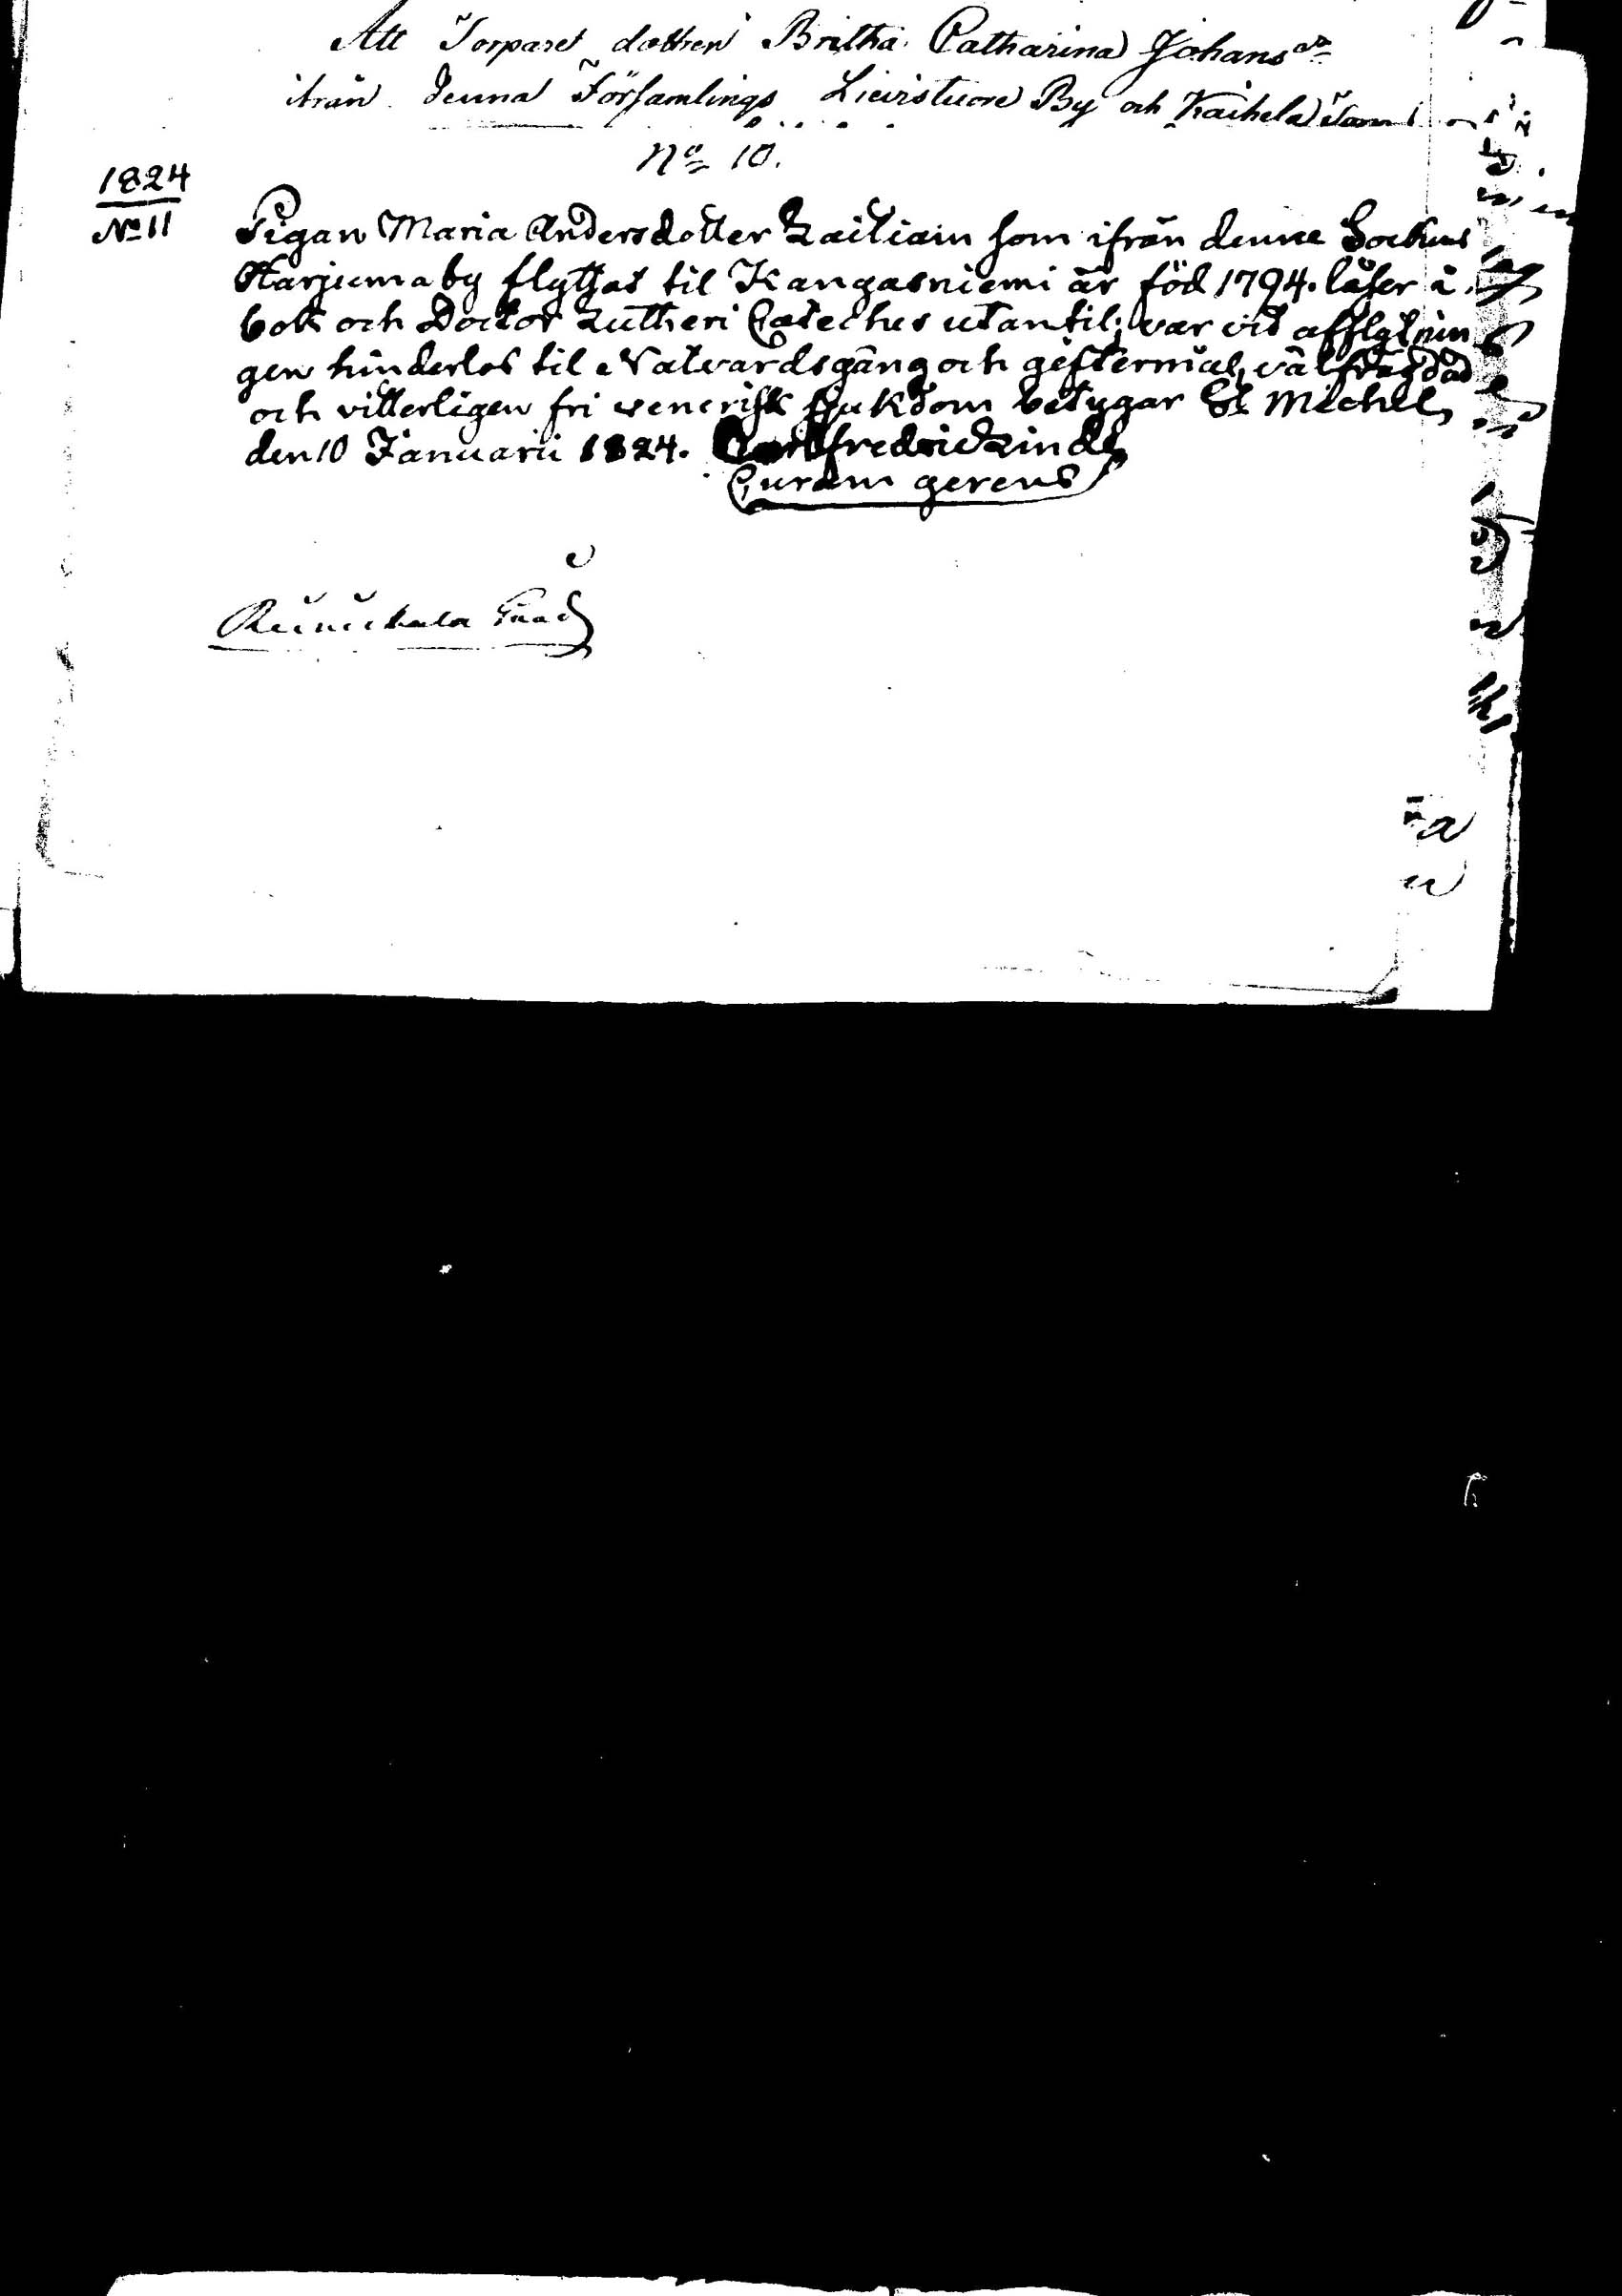 Att Torparet dottren Britha Catharina Johans dr
ifrån denna Församlings Lievistuore By och Kaihela
No 10.
1824
No 11
Pigan Maria Andersdotter Laitiain som ifrån denne Sockens
Harjuma by flyttas til Kangasniemi är född 1794. läser i
bok och Doctor Lutheri Catechus utantil; var vid afflytnin
gen hinderlös til Natvardsgång och giftermål, väl frägdad
och vitterligen fri venerisk sjukdom betygar St Michel
den 10 Januarii 1824. Carl fredric Linde
Curam gerens